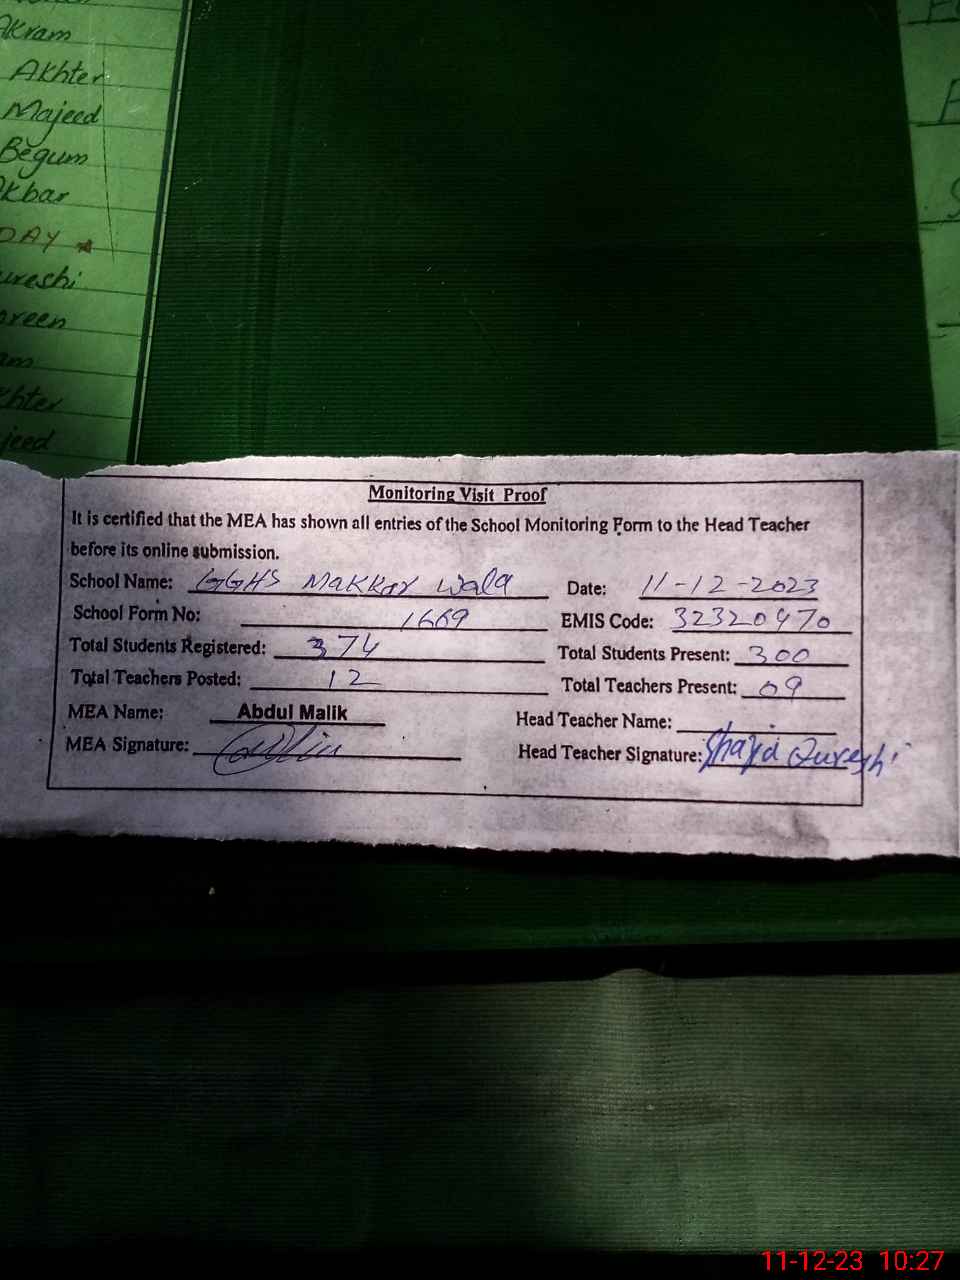 Akram
Akhter
Majeed
Begum
kbar
DAY
ureshi
reen
am
khter
jeed
Monitoring Visit Proof
It is certified that the MEA has shown all entries of the School Monitoring Form to the Head Teacher
before its online submission.
School Name: GGHS Makkar wala Date: 11-12-2023
School Form No: 1669 EMIS Code: 32320470
Total Students Registered: 374 Total Students Present: 300
Total Teachers Posted: 12 Total Teachers Present: 09
MEA Name: Abdul Malik Head Teacher Name:
MEA Signature: Head Teacher Signature: Qureshi
11-12-23 10:27